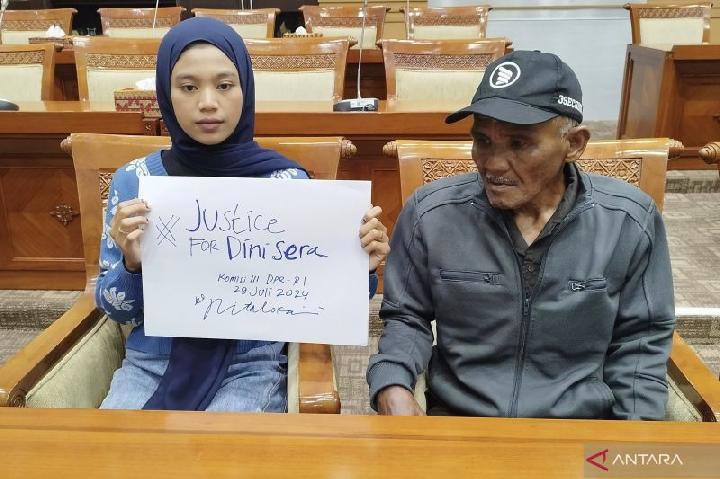 # JUStice
FOR Dini sera
Komisi III DPR-RI
29 Juli 2024
ANTARA